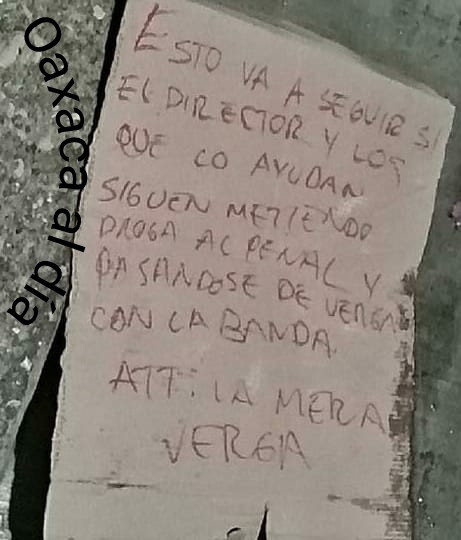 Oaxaca al día
ESTO VA A SEGUIR SI
EL DIRECTOR Y LOS
QUE LO AYUDAN
SIGUEN METIENDO
DROGA AL PENAL Y
PASANDOSE DE VERGAS
CON LA BANDA.
ATT: LA MERA
VERGA